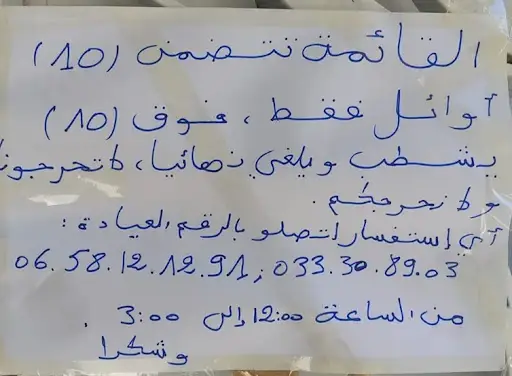 القائمة تتضمن (10)
أوائل فقط، فوق (10)
يشطب ويلغى نهائيا، لا تحرجونا
ولا نحرجكم.
أي إستفسار اتصلو بالرقم العيادة:
06.58.12.12.91; 033.30.89.03
من الساعة 12:00 إلى 3:00.
وشكرا